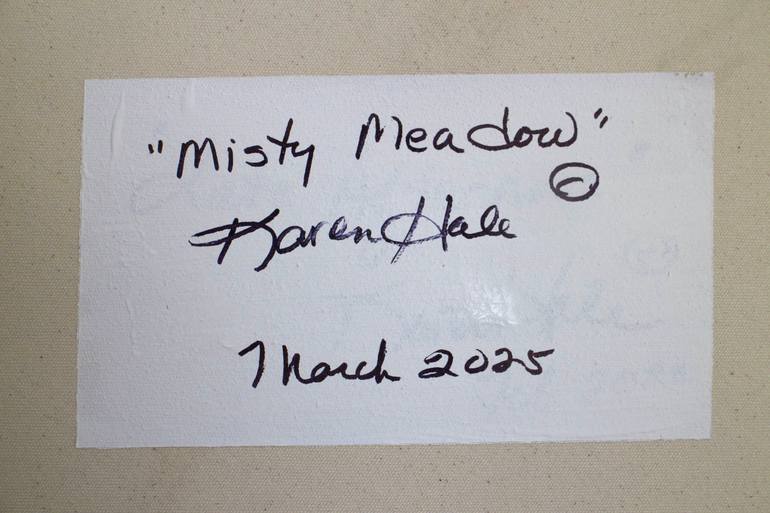 "Misty Meadow"
©
Karen Hale
March 2025